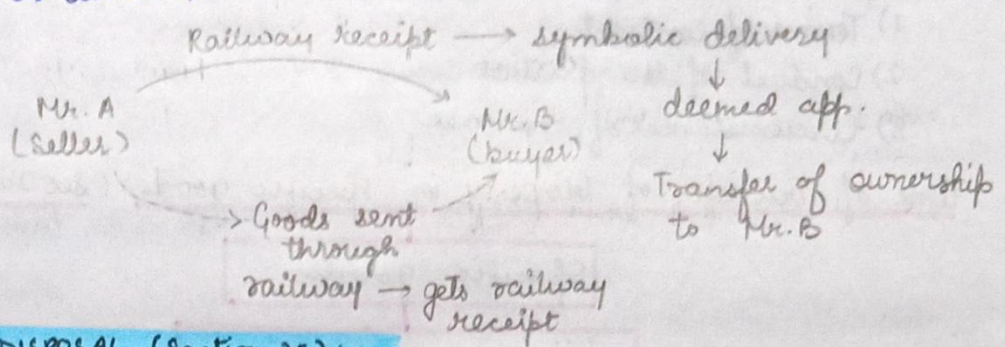 Railway receipt → symbolic delivery
↓
deemed app.
↓
Transfer of ownership
to Mr. B
Mr. A
(Seller)
Mr. B
(buyer)
→ Goods sent
through
railway → gets railway
receipt